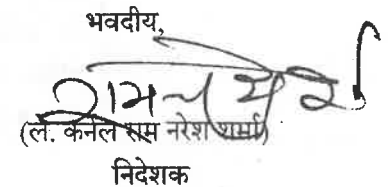 भवदीय,
(ले. कर्नल राम नरेश शर्मा)
निदेशक